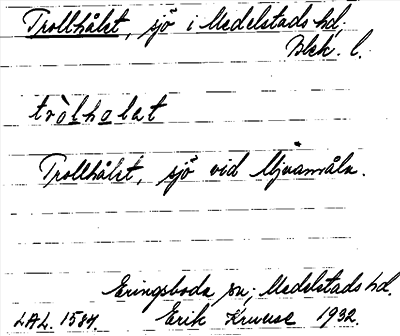 Trollhålet, sjö i Medelstads hd.
Blek. l.
tròlholət
Trollhålet, sjö vid Mjuamåla.
Eringsboda sn; Medelstads hd.
LAL. 1584. Erik Kruuse 1932.